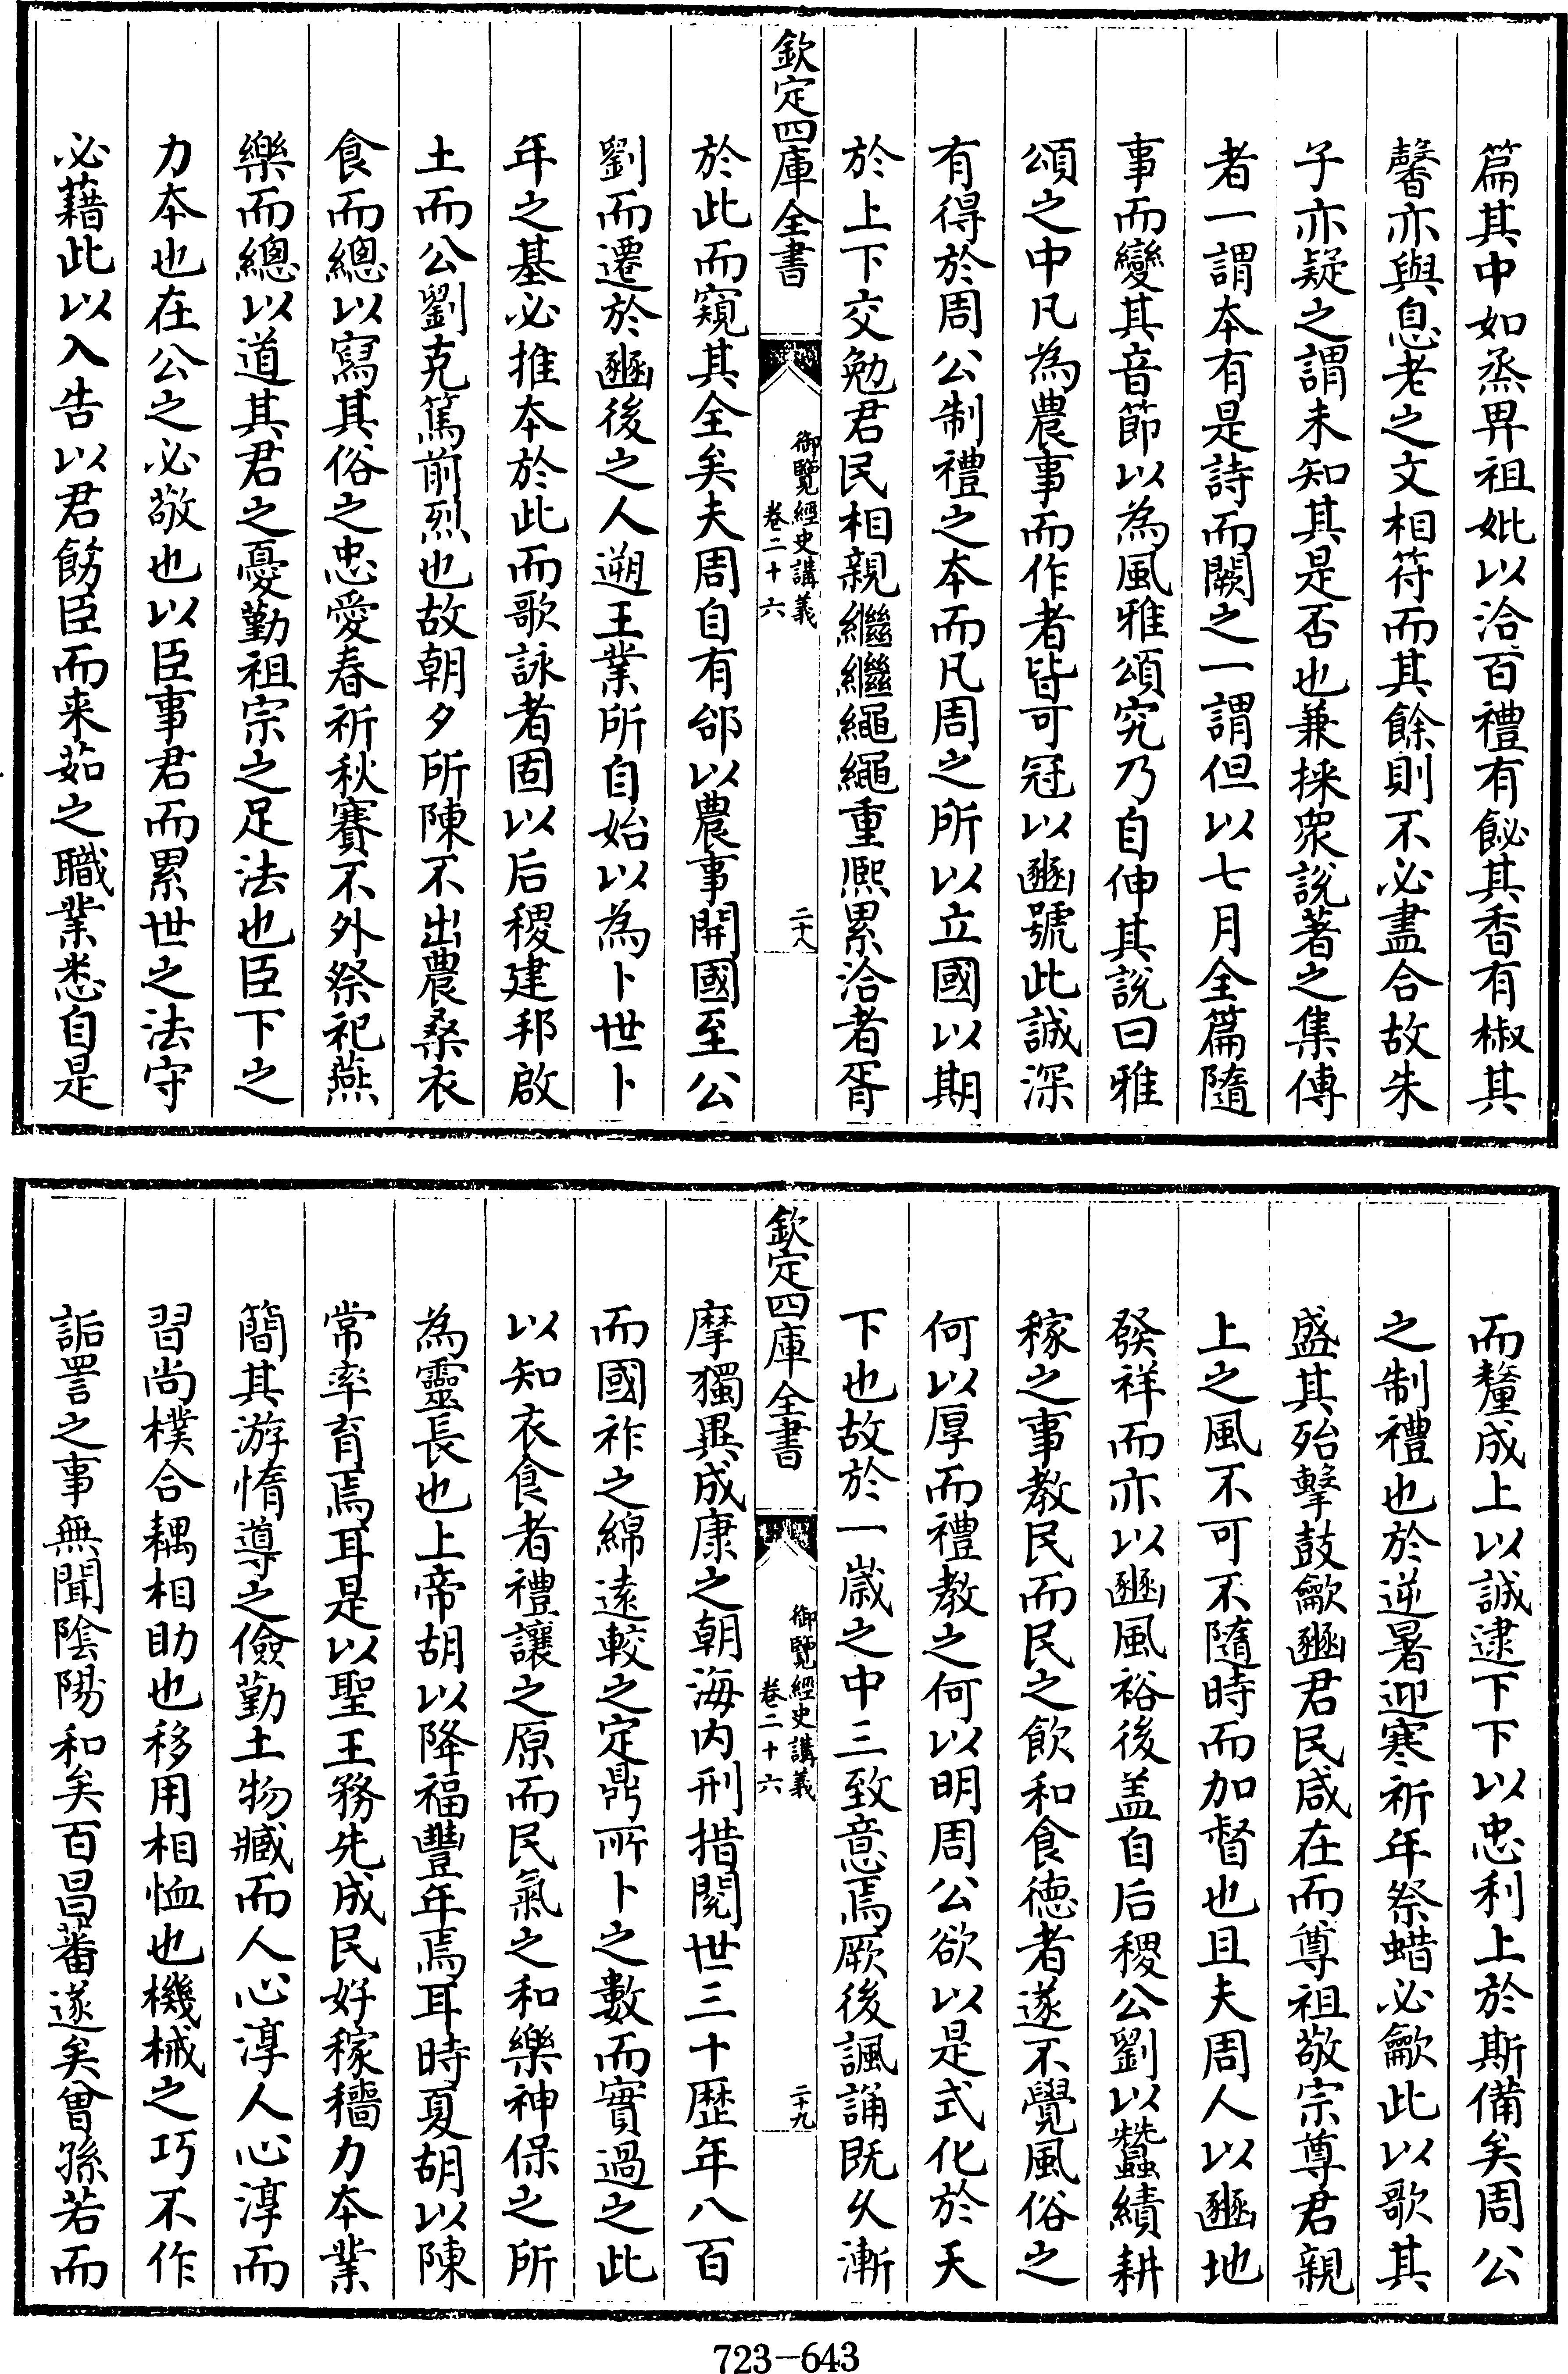 篇其中如烝畀祖妣以洽百禮有飶其香有椒其
馨亦與息老之文相符而其餘則不必盡合故朱
子亦疑之謂未知其是否也兼採衆說著之集傳
者一謂本有是詩而闕之一謂但以七月全篇隨
事而變其音節以為風雅頌究乃自伸其說曰雅
頌之中凡為農事而作者皆可冠以豳號此誠深
有得於周公制禮之本而凡周之所以立國以期
於上下交勉君民相親繼繼繩繩重熙累洽者胥
欽定四庫全書
御覽經史講義
卷二十六
二十八
於此而窺其全矣夫周自有邰以農事開國至公
劉而遷於豳後之人遡王業所自始以為卜世卜
年之基必推本於此而歌詠者固以后稷建邦啟
土而公劉克篤前烈也故朝夕所陳不出農桑衣
食而總以寫其俗之忠愛春祈秋賽不外祭祀燕
樂而總以道其君之憂勤祖宗之足法也臣下之
力本也在公之必敬也以臣事君而累世之法守
必藉此以入告以君飭臣而来茹之職業悉自是
而釐成上以誠逮下下以忠利上於斯備矣周公
之制禮也於逆暑迎寒祈年祭蜡必龡此以歌其
盛其殆擊鼓龡豳君民咸在而尊祖敬宗尊君親
上之風不可不隨時而加督也且夫周人以豳地
發祥而亦以豳風裕後盖自后稷公劉以蠶績耕
稼之事教民而民之飲和食德者遂不覺風俗之
何以厚而禮教之何以明周公欲以是式化於天
下也故於一歲之中三致意焉厥後諷誦既久漸
欽定四庫全書
御覽經史講義
卷二十六
二十九
摩獨異成康之朝海内刑措閱世三十歷年八百
而國祚之綿遠較之定鼎所卜之數而實過之此
以知衣食者禮讓之原而民氣之和樂神保之所
為靈長也上帝胡以降福豐年焉耳時夏胡以陳
常率育焉耳是以聖王務先成民好稼穡力本業
簡其游惰導之儉勤土物臧而人心淳人心淳而
習尚樸合耦相助也移用相恤也機械之巧不作
詬詈之事無聞陰陽和矣百昌蕃遂矣曾孫若而
723-643